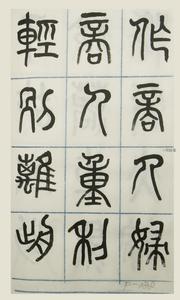 作商人婦
商人重利
輕別離前